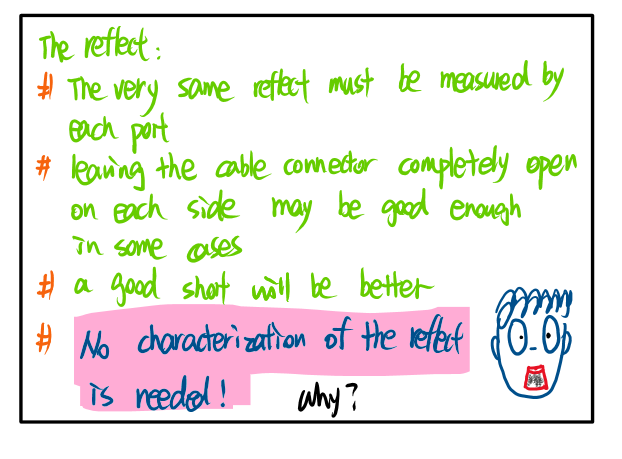 The reflect:
# The very same reflect must be measured by
each port
# leaving the cable connector completely open
on each side may be good enough
in some cases
# a good short will be better
# No characterization of the reflect
is needed! why?